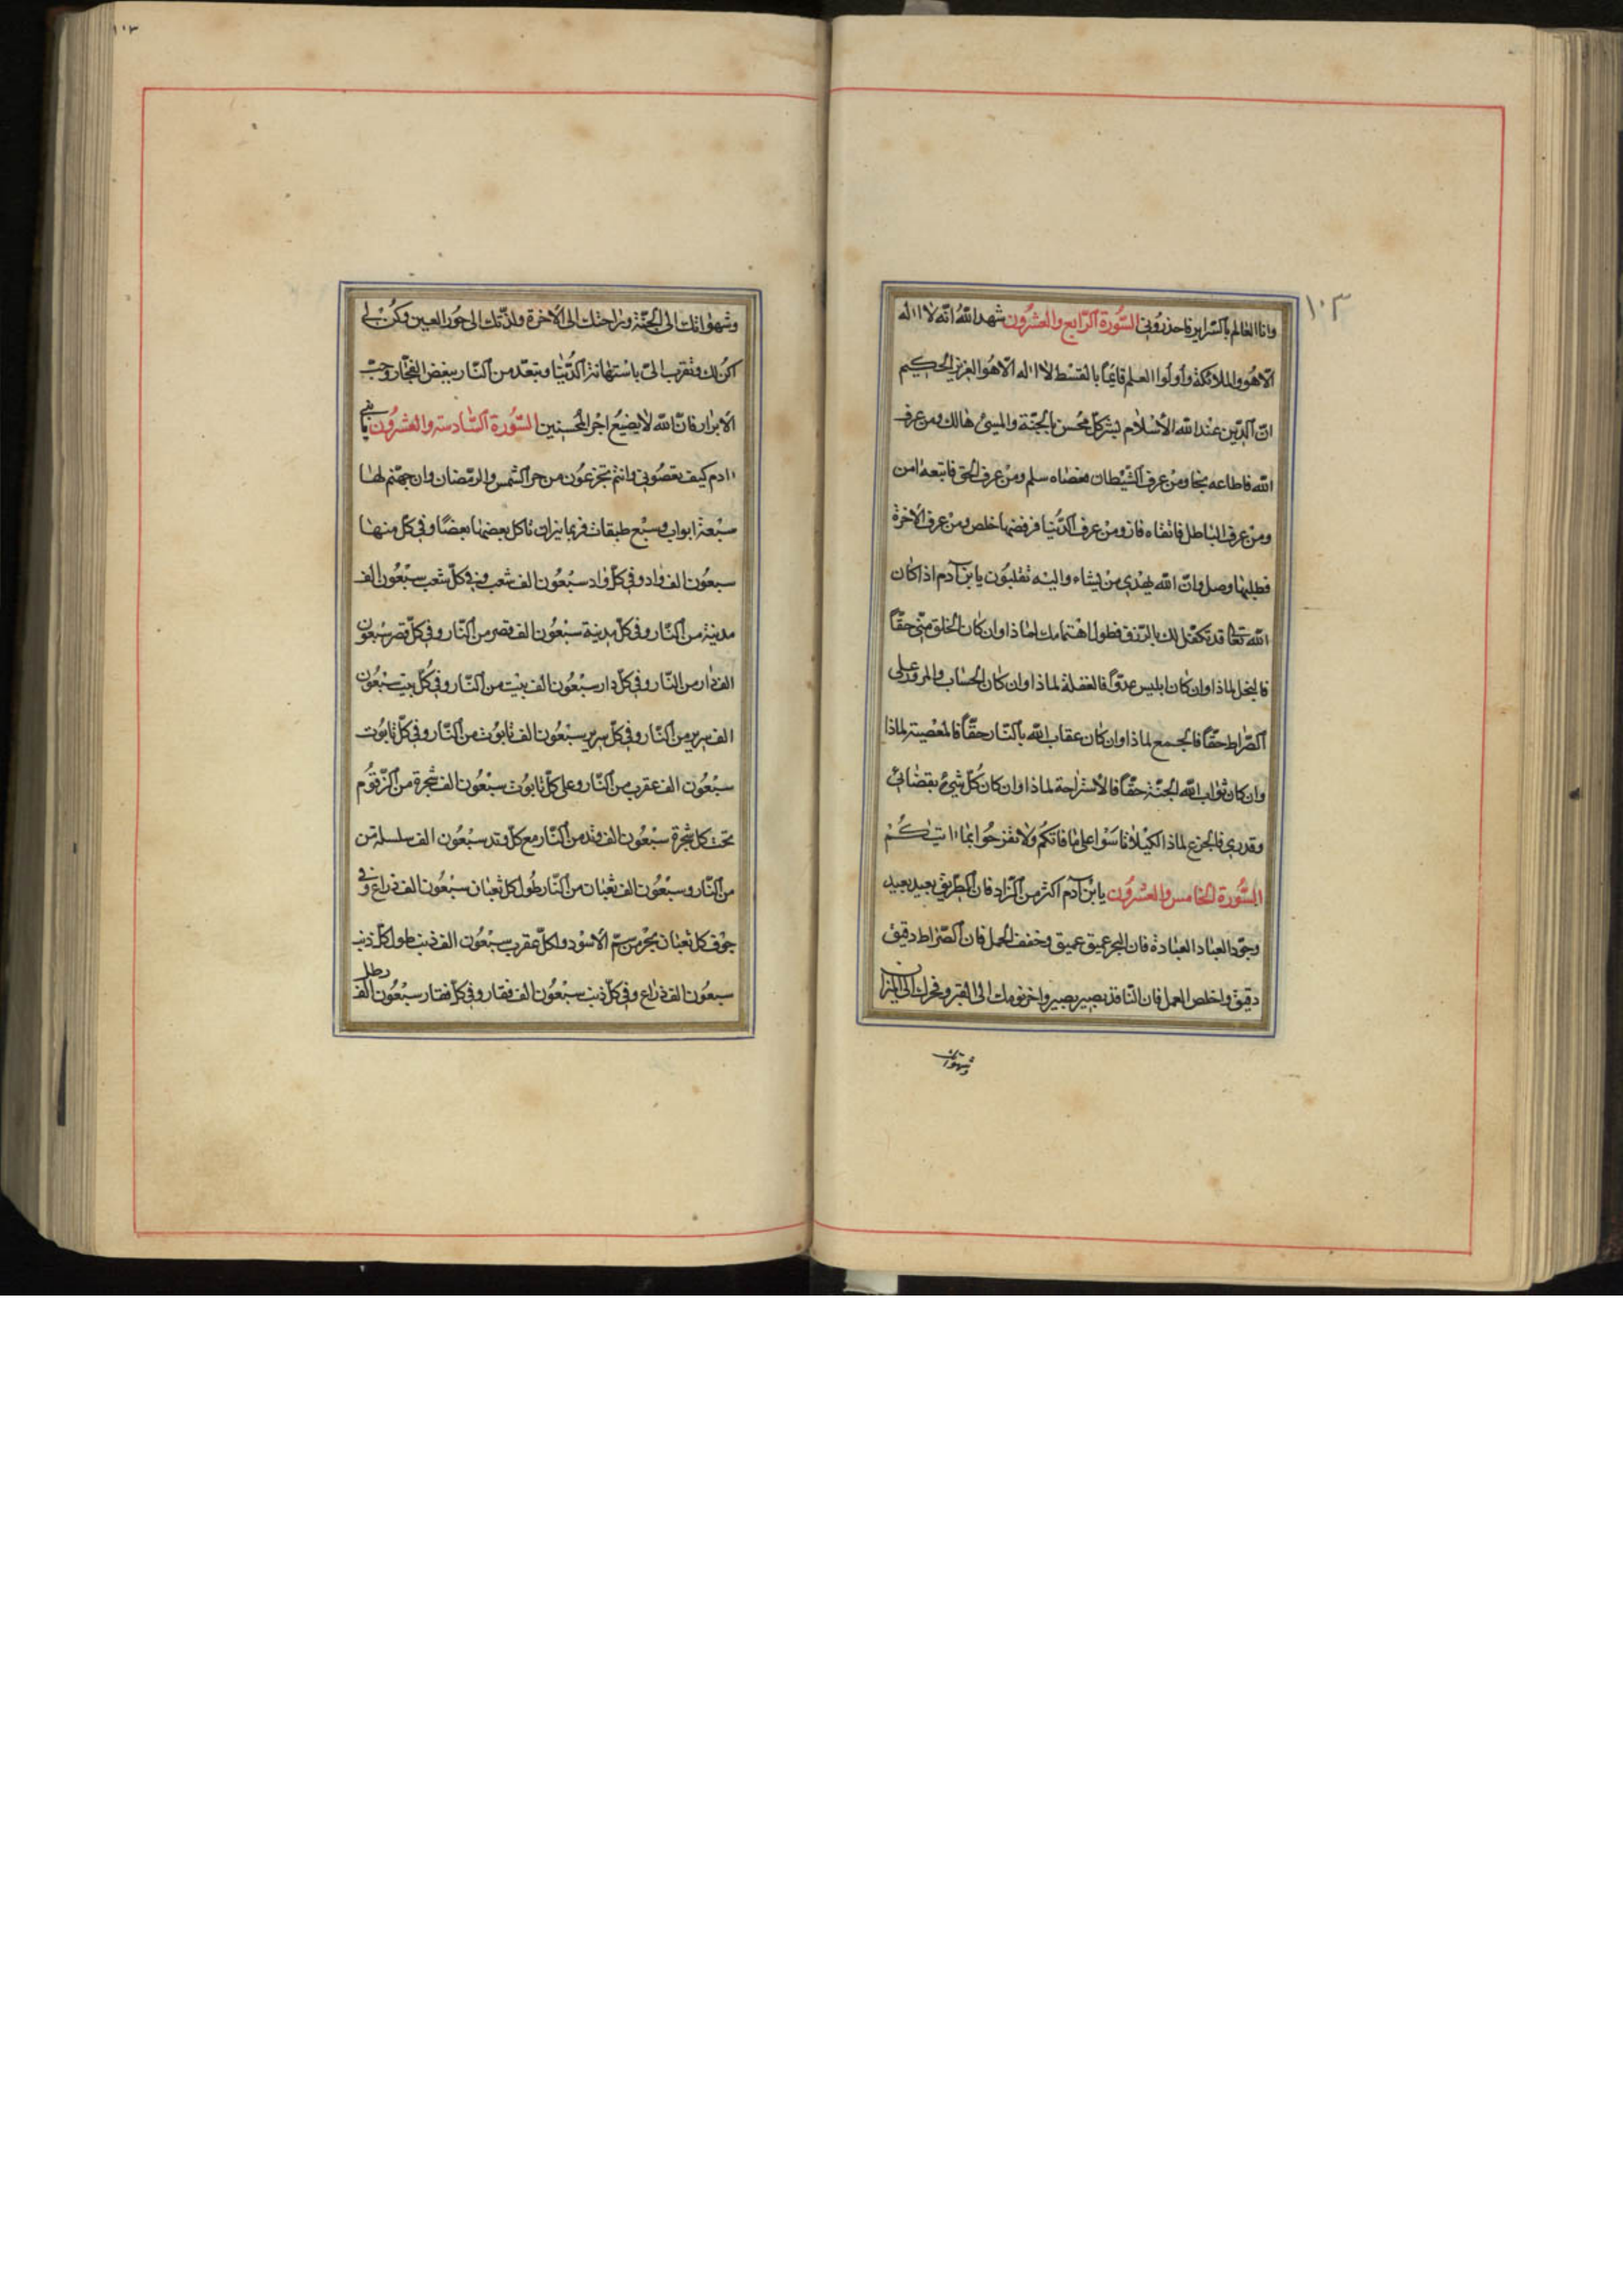 ١٠٣
وانا العالم بالسّراير فاحذرُوني السُّورة الرّابع والعشرُون شهد اللّهُ انّه لا اله
الّا هُو والملائكة وأولُوا العلم قائمًا بالقسْط لا اله الّا هُو العزيز الحكيم
انّ الدّين عنْد اللّه الأسْلام بشر كلّ مُحسن بالجنّة والمسئ هالك ومن عرف
اللّه فاطاعه نجا ومنْ عرف الشّيْطان فعصاه سلم ومنْ عرف الحق فاتبعه امن
ومنْ عرف الباطل فاتقاه فاز ومنْ عرف الدّنيا فرفضها خلص ومنْ عرف الاخرة
فطلبها وصل وانّ اللّه يهْدي منْ يشاء واليْه تقلبُون يا بن آدم اذا كان
اللّه تعالى قد تكفّل لك بالرّزق فطول اهْتمامك لماذا وان كان الخلق منّي حقّاً
فالبخل لماذا وان كان ابليس عدوّاً فالغفلة لماذا وان كان الحسٰاب والمرور على
الصّراط حقّاً فالجمع لماذا وان كان عقاب اللّه بالنّار حقّاً فالمعْصية لماذا
وان كان ثوٰاب اللّه الجنّة حقّاً فالأستراحة لماذا وان كان كُلّ شيئ بقضٰائي
وقدري فالجزع لماذا لكيْلا تاسَوْا على مٰا فاتكُم ولا تفْرحُوا بما اتٰيكُمْ
السُّورة الخامس والعشرُون يا بْن آدم اكثر من الزّاد فان الطّريق بعيد بعيد
وجدّد العباد العبادة فان البحر عميق عميق وخفف الحمل فان الصّراط دقيق
دقيق واخلص العمل فان النّاقد بصير بصير واخر نومك الى القبر وفخرك الى الميزان
وشهوٰاتك
وشهوٰاتك الى الجنّة ورٰاحتك الى الأخرة ولذّتك الى حُور العين وكُن لي
اكن لك وتقرب الىّ باسْتهانة الدُّنْيا وتبعّد من النّار ببغض الفجّار وحبّ
الأبرار فانّ اللّه لا يضيعُ اجْر المُحسنين السُّورة السّادسة والعشرُون يا بني
ادم كيف تعصُوني وانتم تجزعُون من حر الشّمس والرّمضان وان جهنّم لهٰا
سبْعة ابواب وسبْع طبقات فيها نيران تاكل بعضهٰا بعضًا وفي كلّ منهٰا
سبعُون الف وٰاد وفي كلّ وٰاد سبْعُون الف شعب وفي كلّ شعب سبْعُون الف
مدينة من النّار وفي كلّ مدينة سبْعُون الف قصر من النّار وفي كلّ قصر سبْعوُن
الف دٰار من النّار وفي كلّ دار سبْعُون الف بيْت من النّار وفي كُلّ بيت سبْعُون
الف سرير من النّار وفي كلّ سرير سبْعُون الف تابُوت من النّار وفي كلّ تابُوت
سبْعُون الف عقرب من النّار وعلى كلّ تابُوت سبْعُون الف شجرة من الزّقُّوم
تحْت كل شجرة سبْعُون الف وتد من النّار مع كلّ وتد سبْعُون الف سلسلة من
من النّار وسبْعُون الف ثعْبان من النّار طُول كل ثعْبان سبْعُون الف ذراع وفي
جوْف كل ثعبان بحْر من سمّ الأسْود ولكلّ عقرب سبْعُون الف ذنب طول كلّ ذنب
سبعُون الف ذرٰاع وفي كلّ ذنب سبْعُون الف فقار وفي كلّ فقار سبْعُون الف رطل
١٠٣